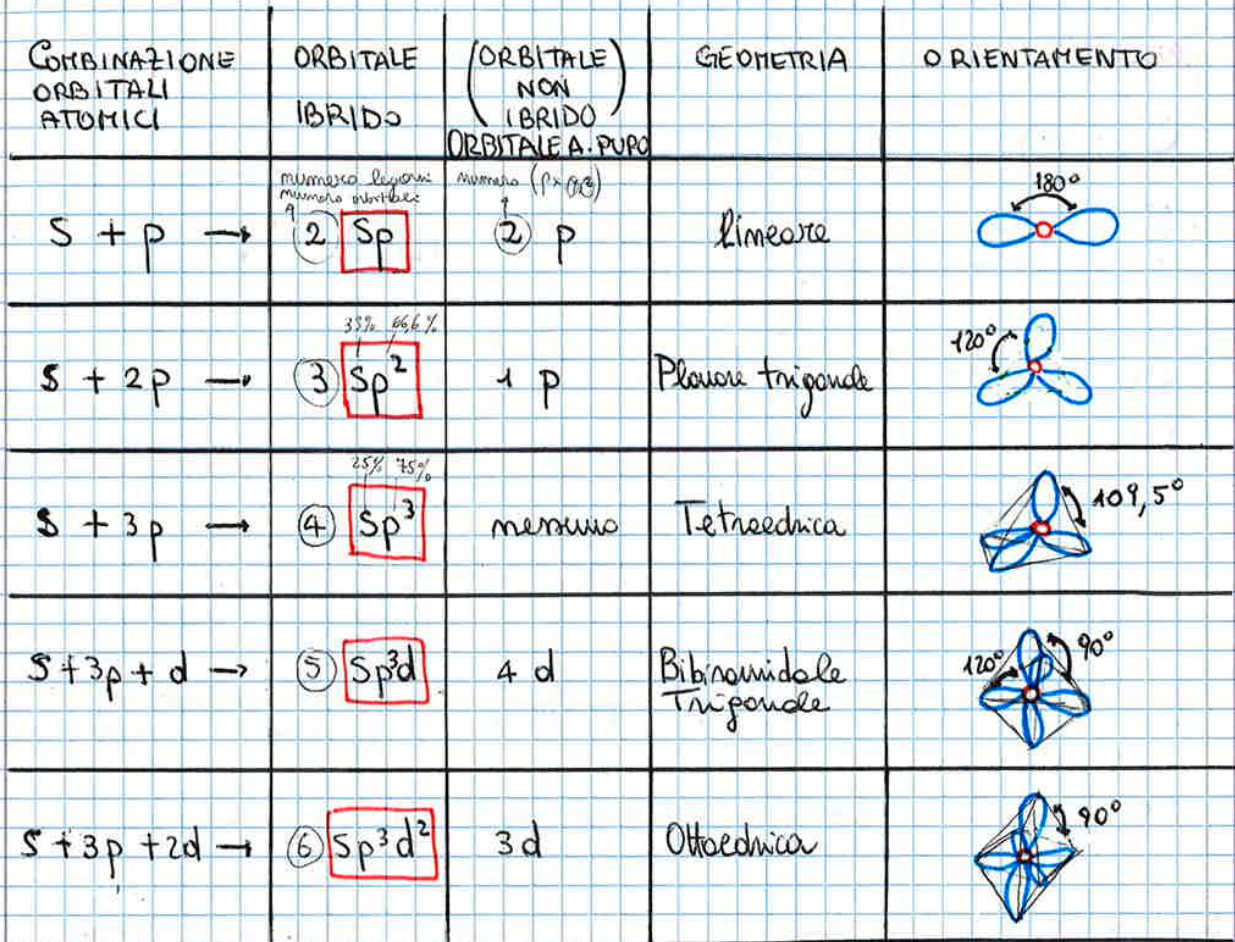 COMBINAZIONE
ORBITALI
ATOMICI
ORBITALE
IBRIDO
(ORBITALE)
NON
IBRIDO
ORBITALE A. PURO
GEOMETRIA
ORIENTAMENTO
numero legami
numero orbitali
numero
S + p →
2 Sp
2 p
lineare
180°
33% 66,6%
S + 2p →
3 Sp²
1 p
Planare trigonale
120°
25% 75%
S + 3p →
4 Sp³
nessuno
Tetraedrica
109,5°
S + 3p + d →
5 Sp³d
4 d
Bibiramidale
Trigonale
120°
90°
S + 3p + 2d →
6 Sp³d²
3 d
Ottaedrica
90°